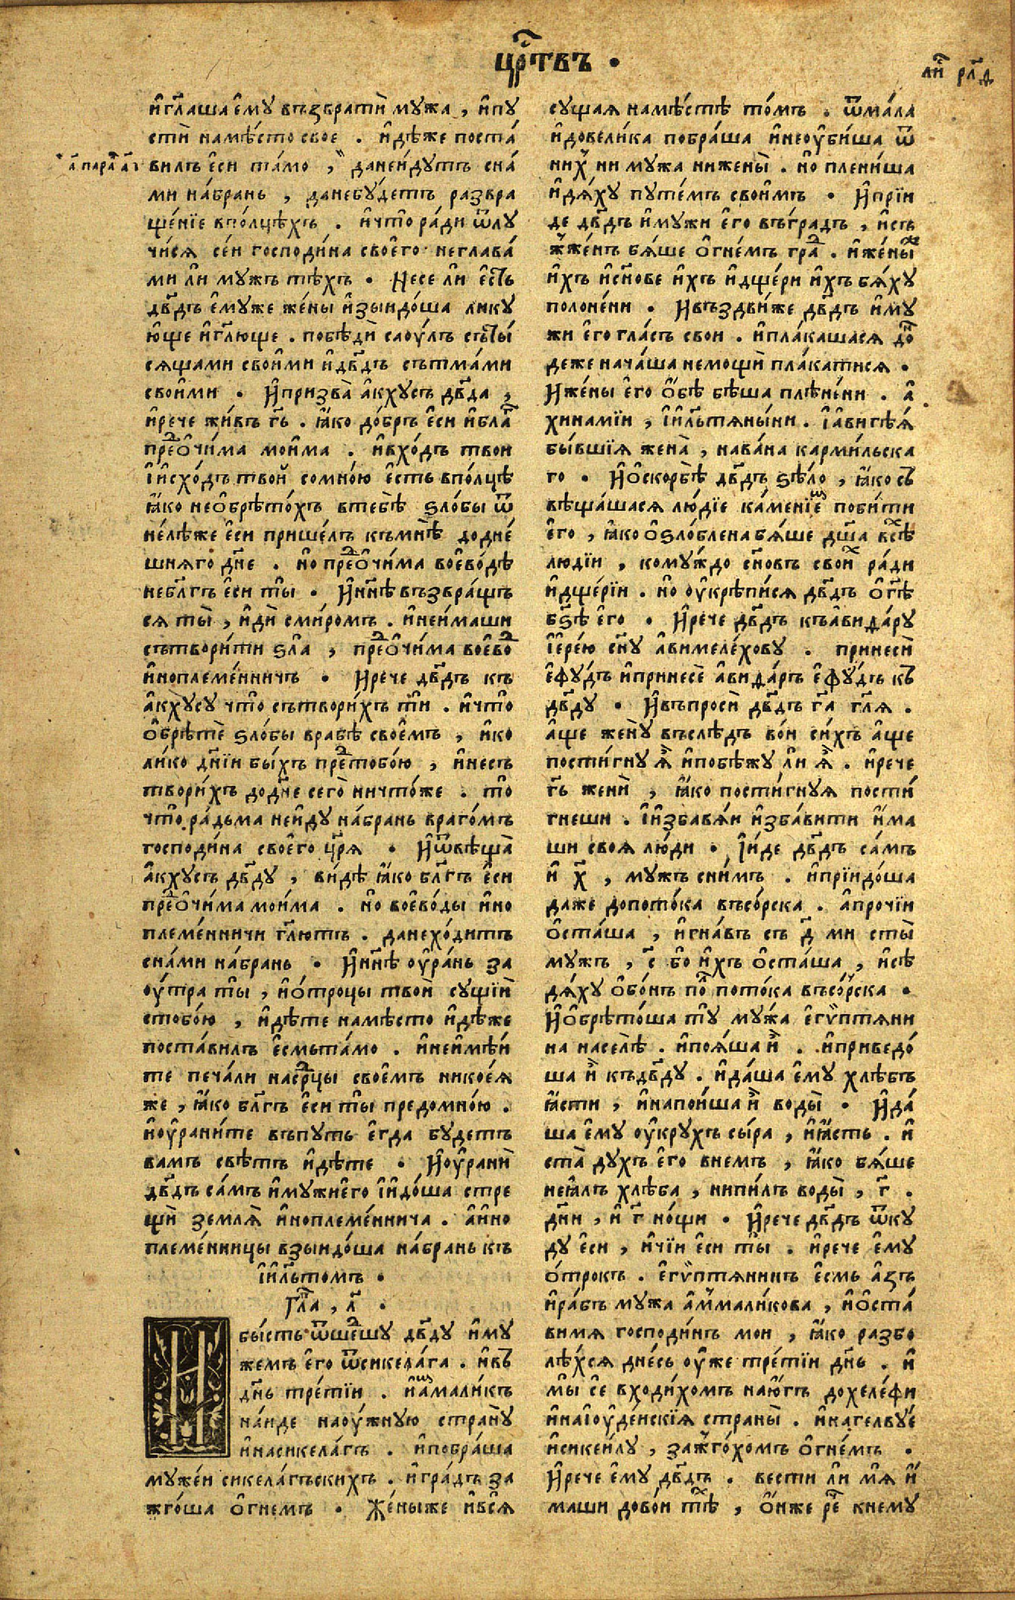 црⷭ҇твъ ·
ли рл҃д
а҃ пара а҃ı
и҆гл҃аша є҆му възвратѝ мужа , и҆пу
стѝ намѣ́сто свое . и҆дѣ́же поста́
вилъ є҆си та́мо , данеи́дутъ сна́
ми на́брань , данебу́детъ развра
ще́нїе впо́лцѣхъ . и҆что̀ ра́ди ѿлу
чи́ся се́и господи́на свое́го неглава́
ми ли мужъ тѣ́хъ · Несе ли є҆сть
дв҃дъ є҆муже же́ны и҆зыидо́ша лику
ю́ще и҆гл҃юще . побѣдѝ саоу́лъ съты́
сящами свои́ми и҆дв҃дъ сътма́ми
свои́ми · И҆призва̀ а҆кхусъ дв҃да ,
и҆рече жи́въ гь҃ . ꙗ҆ко до́бръ є҆си и҆бла҃г
пре́дочи́ма мои́ма . и҆вхо́дъ твои
і҆и҆схо́дъ тво́й сомно́ю є҆сть впо́лцѣ
ꙗ҆ко необрѣто́хъ втебѣ̀ ѕло́бы ѿ
не́лѣже є҆си прише́лъ къмнѣ̀ додне́
шняго дн҃е . но пре́дочи́ма воево́дѣ
небл҃гъ є҆си ты̀ · И҆нн҃ѣ възвра́щъ
ся ты̀ , и҆дѝ сми́ромъ . и҆неи́маши
сътвори́ти ѕла̀ , пре́дочи́ма воево́дъ
и҆ноплеме́нничь · И҆рече дв҃дъ къ
а҆кху́су что̀ сътвори́хъ ти . и҆что̀
о҆брѣ́те ѕло́бы врабѣ̀ свое́мъ , и҆ко
ли́ко дні́и бы́хъ пре́тобо́ю , и҆несъ
твори́хъ додн҃е сего̀ ничто́же . то̀
что̀ ра́дьма неи́ду на́брань враго́мъ
господи́на свое́го цр҃я · И҆ѿвѣща̀
А҆кхусъ дв҃ду , ви́дѣ ꙗ҆ко бл҃гъ є҆си
пре́дочи́ма мои́ма . но воево́ды и҆но
племе́нничи гл҃ютъ . данехо́дитъ
сна́ми на́брань · И҆нн҃ѣ оу҆ра́нь за
оу́тра ты̀ , и҆о҆троцы твои̇̀ су́щїи
стобо́ю , и҆дѣ́те намѣ́сто и҆дѣ́же
поста́вилъ є҆смьта́мо . и҆неимѣ́й
те печа́ли насе́рцы свое́мъ никое́я
же , ꙗ҆ко бл҃гъ є҆си ты̀ предомно́ю .
и҆оу҆рани́те въпу́ть є҆гда бу́детъ
вамъ свѣ́тъ и҆дѣ́те · И҆оу҆ранѝ
дв҃дъ са́мъ и҆мужиє҆го і҆идо́ша стре
щѝ земля̀ и҆ноплеме́ннича . а҆и҆но
племе́нницы взыидо́ша на́брань къ
і҆и҃льтомъ ·
Гл҃а , л҃ ·
Н бы́сть ѿше́дшу дв҃ду и҆му
жемъ є҆го ѿсикела́га . и҆въ
дн҃ь тре́тїи . и҆а҆мали́къ
на́иде наоу́жную страну̀
и҆насикела́гъ . и҆побра́ша
муже́и сикела́гъскихъ . и҆гра́дъ за
жго́ша о҆гнемъ · Же́ныже и҆вся̀
сущая намѣ́стѣ то́мъ . ѿма́ла
и҆довели́ка побра́ша и҆неоу҆би́ша ѿ
ни́х ни мужа нижены̀ . но плени́ша
и҆дя́ху путе́мъ свои́мъ · И҆прїи
де дв҃дъ и҆мужи є҆го въгра́дъ , и҆съ
жже́нъ бя́ше о҆гне́мъ гра́д . и҆же́ны
и҆хъ и҆сн҃ове и҆хъ и҆дще́ри и҆хъ бя́ху
полоне́ни · И҆въздви́же дв҃дъ и҆му
жи є҆го гла́съ свои . и҆пла́кашася до́н
деже нача́ша немощѝ пла́катися ·
И҆же́ны є҆го о҆́бѣ бѣ́ша плѣне́ни . а҆
хинами́и , і҆и҃льтяны́ни . і҆авиге́я
бы́вшїя жена̀ , нава́на карми́льска
го · И҆о҆скорбѣ̀ дв҃дъ ѕѣ́ло , ꙗ҆ко съ
вѣща́шася лю́дїе ка́менїем поби́ти
є҆го , ꙗ҆ко о҆ѕло́блена бя́ше дш҃а всѣ́х
лю́дїи , кому́ждо сн҃овъ свои́х ра́ди
и҆дще́рїи . но оу҆крѣпи́ся дв҃дъ о҆гѣ҃
бз҃ѣ є҆го · И҆рече дв҃дъ къа҆виаѳа́ру
і҆ере́ю сн҃у а҆вимеле́хову . принесѝ
є҆фу́дъ и҆принесѐ а҆виаѳа́ръ є҆фу́дъ къ
дв҃ду · И҆въпросѝ дв҃дъ га҃ гл҃я .
а҆ще жену̀ въслѣ́дъ во́и си́хъ а҆ще
пости́гну ѧ҆̀ и҆побѣжу̀ ли ѧ҆̀ . и҆рече
гь҃ женѝ , ꙗ҆ко пости́гнуя пости́
гнеши . і҆избавля́и и҆зба́вити и҆́ма
ши своя лю́ди · І҆и́де дв҃дъ са́мъ
и҆ х҃ , му́жъ сни́мъ . и҆прїидо́ша
даже допото́ка въсо́рска . а҆прочїи
о҆ста́ша , и҆гна́въ съ д҃ ми сты̀
му́жъ , с҃ бо и҆хъ о҆ста́ша , и҆сѣ
дя́ху о҆бо́нъ по́л пото́ка въсо́рска ·
И҆о҆брѣто́ша ту̀ му́жа є҆гѷптяни
на населѣ̀ . и҆поя́ша и҆̀ . и҆приведо́
ша и҆̀ къдв҃ду . и҆да́ша є҆му хлѣ́бъ
ꙗ҆сти , и҆напои́ша и҆̀ воды̀ · И҆да́
ша є҆му оу҆кру́хъ сы́ра , и҆ꙗ҆сть . и҆
ста̀ ду́хъ є҆го внемъ , ꙗ҆ко бя́ше
неꙗ҆́лъ хлѣ́ба , нипи́лъ воды̀ , г҃ .
дн҃и , и҆ г҃ но́щи · И҆рече дв҃дъ ѿку
ду є҆си , и҆чїи є҆си ты̀ . и҆рече є҆му
о҆трокъ . є҆гѷптянинъ є҆смь а҆́зъ
и҆ра́бъ мужа а҆ммали́кова , и҆о҆ста́
вимя господи́нъ мои , ꙗ҆ко разбо
лѣ́хся дне́сь оу҆же тре́тїи дн҃ь . и҆
мы̀ се входи́хомъ наю́гъ дохеле́фи
и҆наїоуде́искїя страны̀ . и҆нагелвуе
и҆сикеи́лу , зажго́хомъ о҆гне́мъ .
И҆рече є҆му дв҃дъ . вести ли мя и҆́
маши дово́и тѣ́х , о҆́нже ре́ч кнему